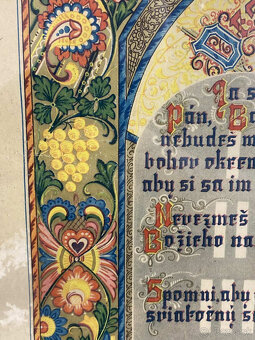 Ja s
Pán, Bo
nebudeš m
bohov okrem
aby si sa im
Nevezmeš
Božieho na
Spomni, aby
sviatočný s